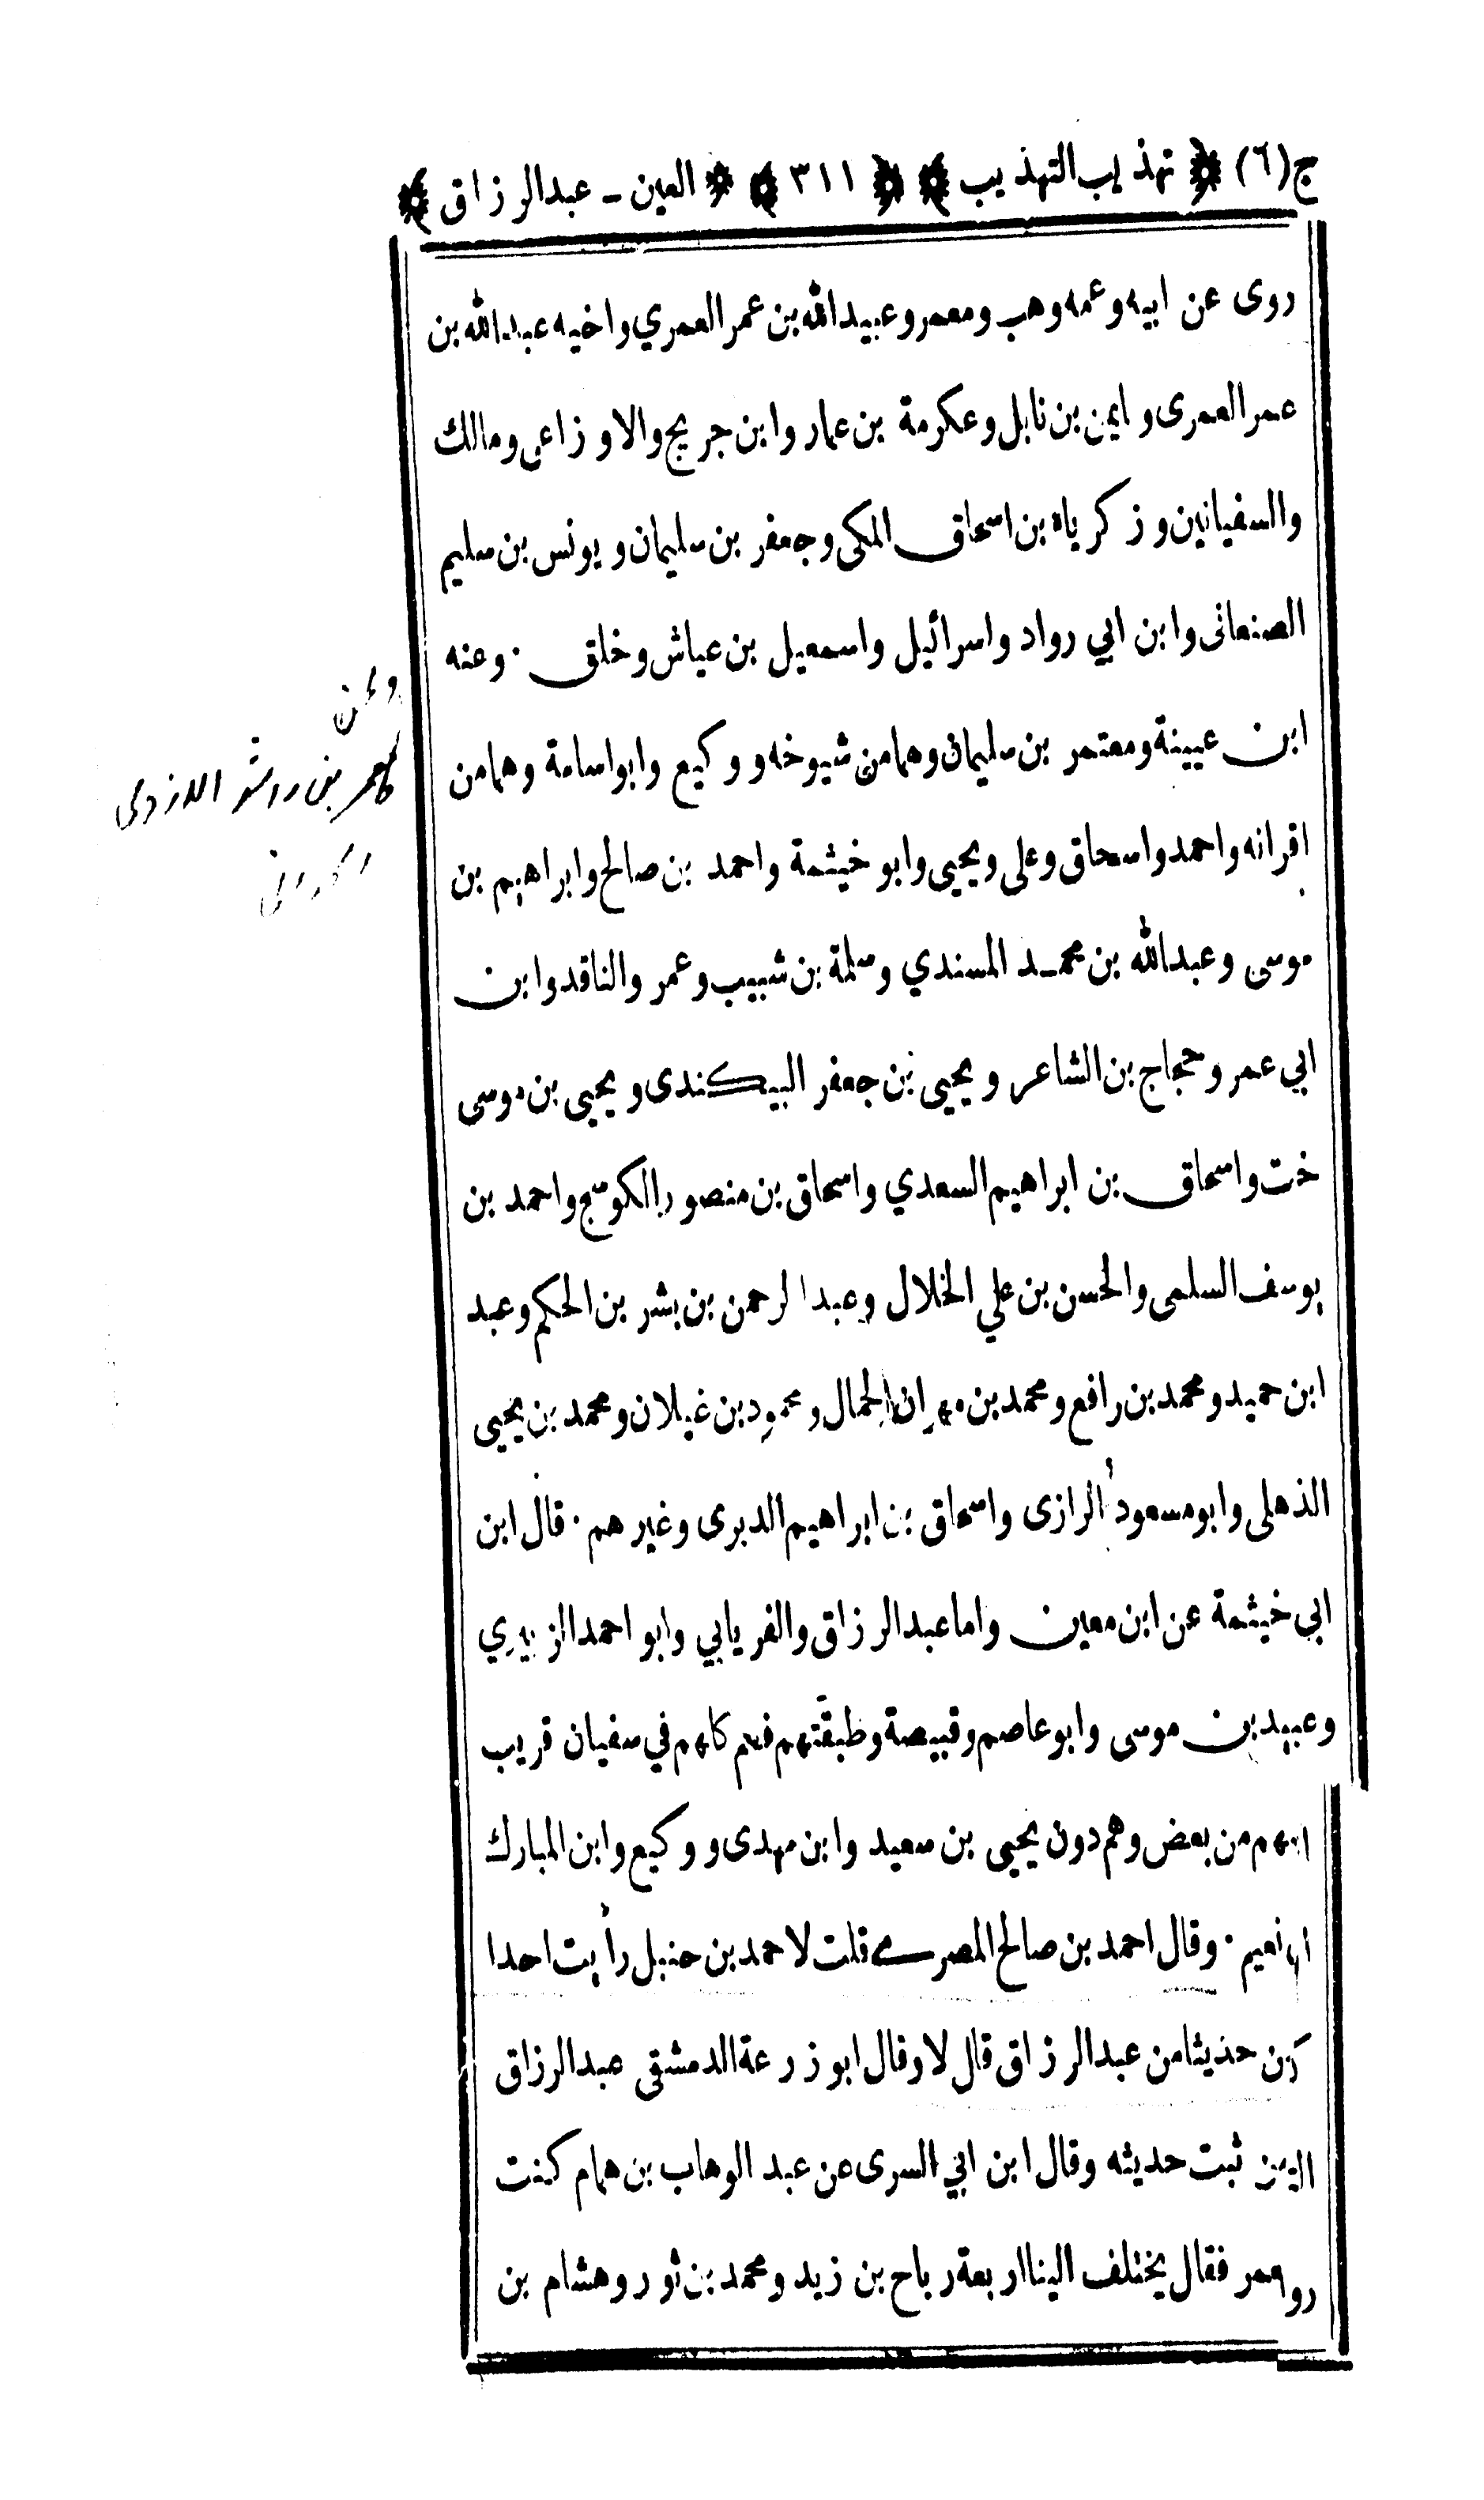 ج(٦) ﴿ تهذيب التهذيب ﴾ ﴿ ٣١١ ﴾ ﴿ العين - عبدالرزاق ﴾
روى عن ابيه وعمه وهب ومعمر وعبيدالله بن عمر العمري واخيه عبدالله بن
عمر العمرى وايمن بن نابل وعكرمة بن عمار وابن جريج والاوزاعى ومالك
والسفيانين وزكرياء بن اسحاق المكى وجعفر بن سليمان ويونس بن سليم
الصنعانى وابن ابي رواد واسرائيل واسمعيل بن عياش وخلق . وعنه
ابن عيينة ومعتمر بن سليمان وهما من شيوخه ووكيع وابو اسامة وهما من
اقرانه واحمد واسحاق وعلى ويحيى وابو خيثمة واحمد بن صالح وابراهيم بن
موسى وعبدالله بن محمد المسندي وسلمة بن شبيب وعمر والناقد وابن
ابي عمر وحجاج بن الشاعر ويحيى بن جعفر البيكندى ويحيى بن موسى
خت واسحاق بن ابراهيم السعدي واسحاق بن منصور الكوسج واحمد بن
يوسف السلمى والحسن بن علي الخلال وعبدالرحمن بن بشر بن الحكم وعبد
ابن حميد ومحمد بن رافع ومحمد بن مهران الجمال ومحمود بن غيلان ومحمد بن يحيى
الذهلى وابو مسعود الرازى واسحاق بن ابراهيم الدبرى وغيرهم . قال ابن
ابي خيثمة عن ابن معين واما عبدالرزاق والفريابي وابو احمد الزبيري
وعبيد بن موسى وابو عاصم وقبيصة وطبقتهم فهم كلهم في سفيان قريب
بعضهم من بعض وهم دون يحيى بن سعيد وابن مهدى ووكيع وابن المبارك
ابي نعيم . وقال احمد بن صالح المصرى قلت لاحمد بن حنبل رأيت احدا
حديثا من عبدالرزاق قال لا وقال ابو زرعة الدمشقى عبدالرزاق
ثبت حديثه وقال ابن ابي السرى عن عبد الوهاب بن همام كنت
معمر فقال يختلف الينا اربعة رباح بن زيد ومحمد بن ثور وهشام بن
وعن
معمر بن راشد الازدى